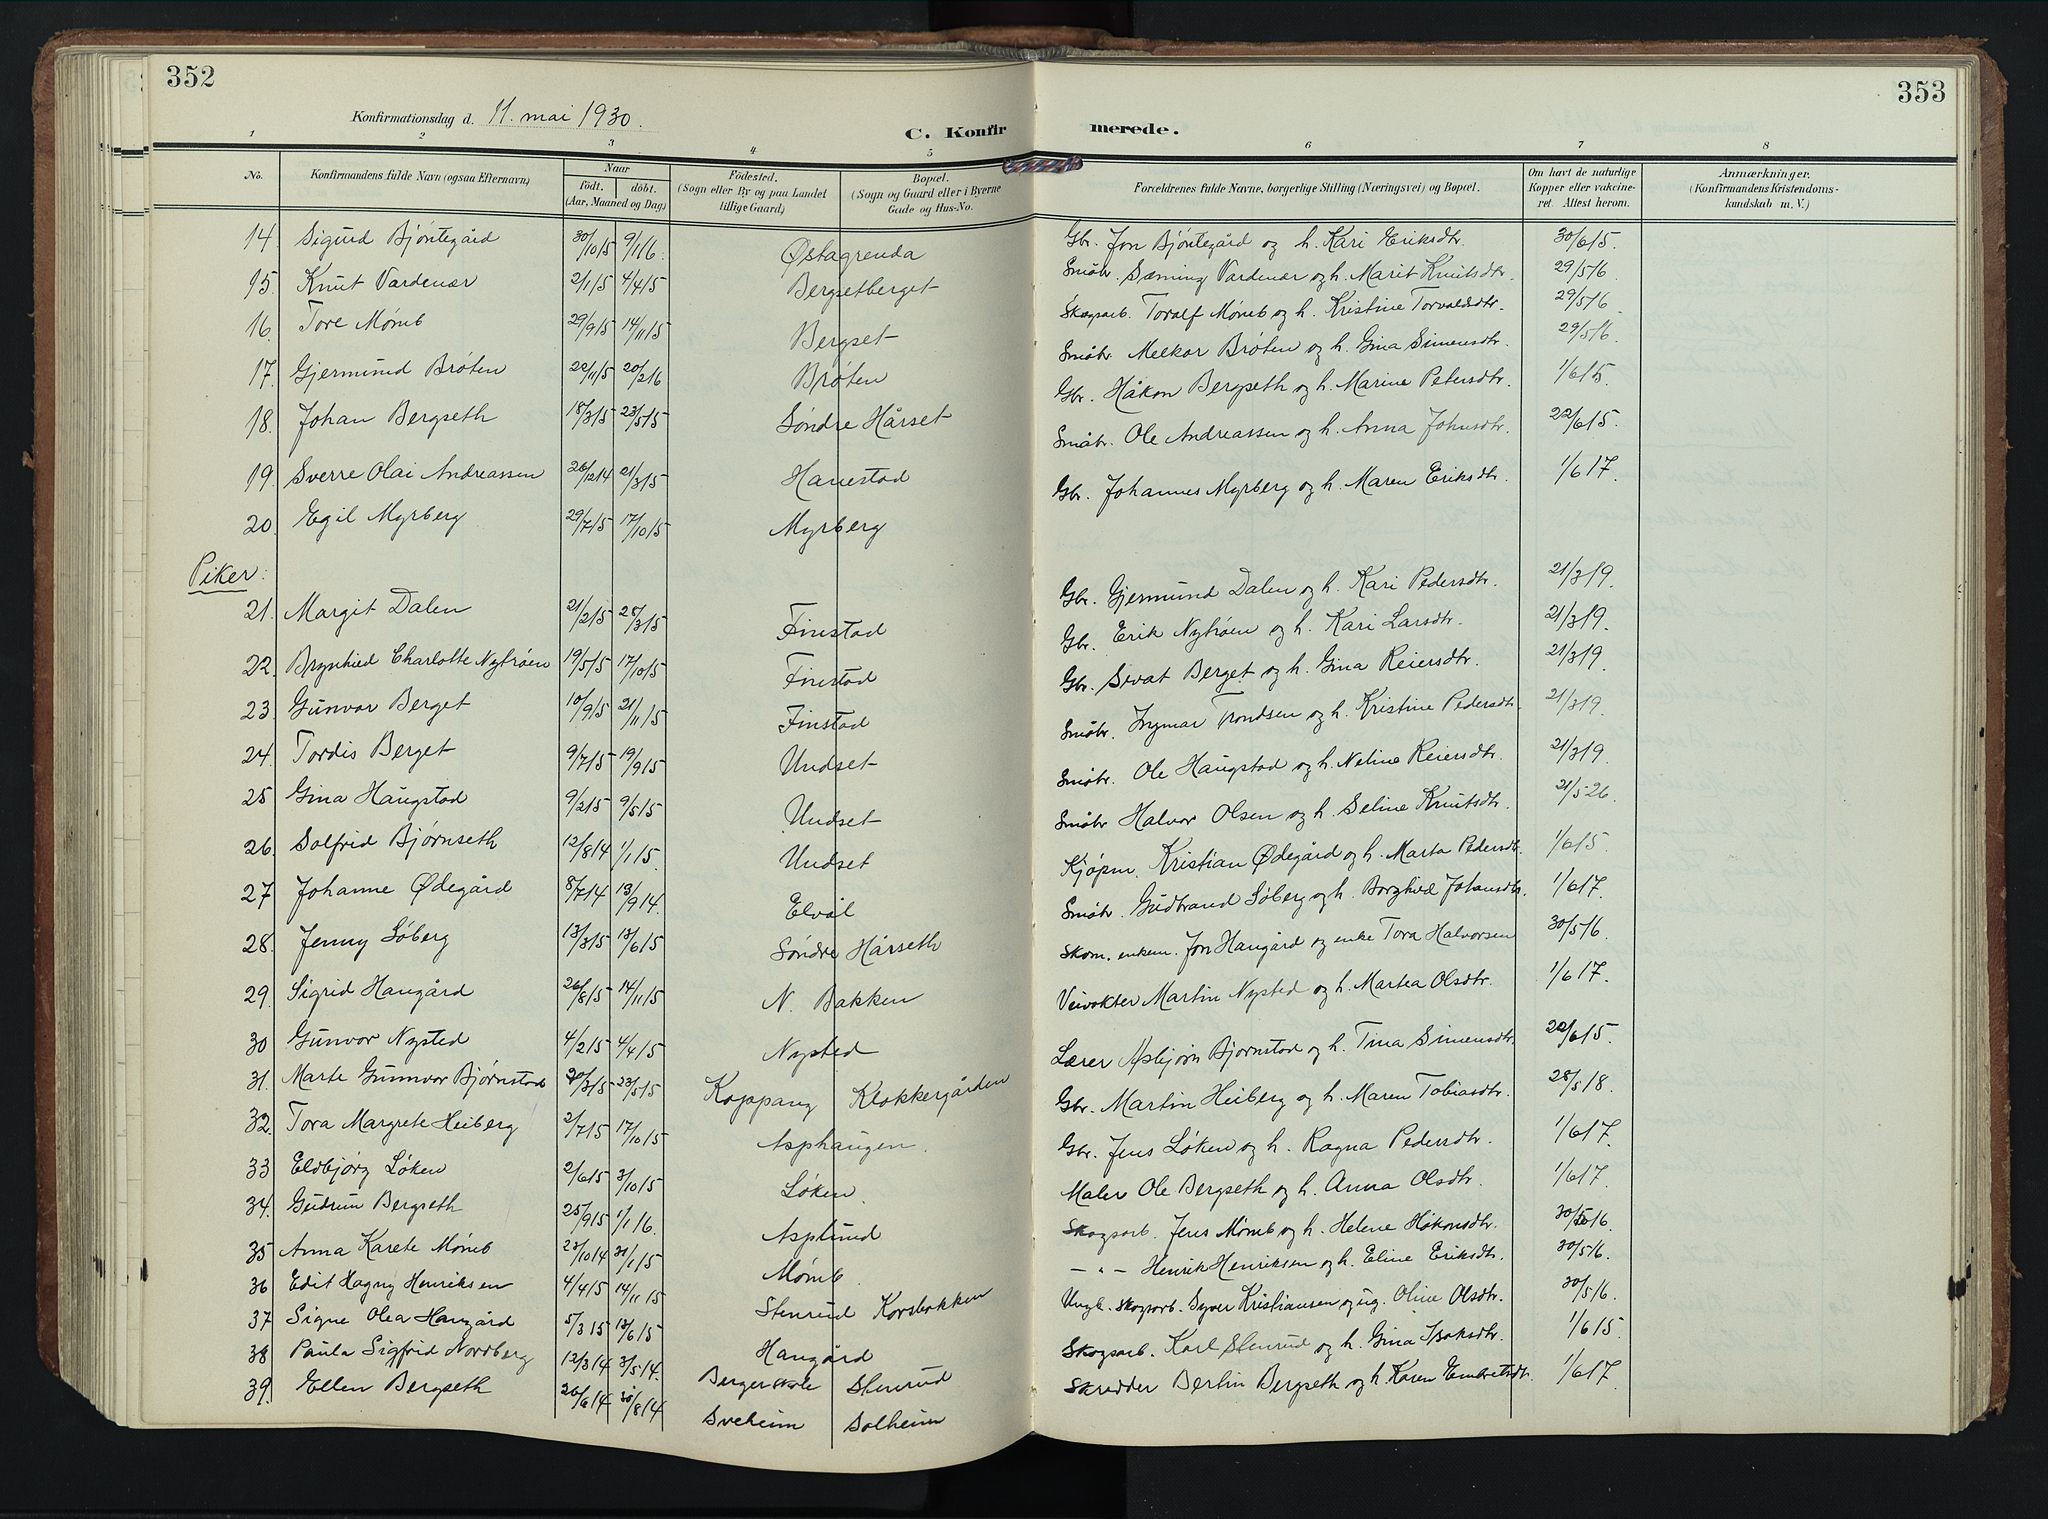 352
353
Konfirmationsdag d. 11. mai 1930.
C. Konfirmerede.
1 2 3 4 5 6 7 8
No. Konfirmandens fulde Navn (ogsaa Efternavn) Naar født. døbt. (Aar, Maaned og Dag) Fødested. (Sogn eller By og paa Landet tillige Gaard) Bopæl. (Sogn og Gaard eller i Byerne Gade og Hus-No. Forældrenes fulde Navne, borgerlige Stilling (Næringsvei) og Bopæl. Om havt de naturlige Kopper eller vakcineret. Attest herom. Anmærkninger. (Konfirmandens Kristendomskundskab m. V.)
14 Sigurd Bjøntegård 30/10 15 9/1 16. Østagrenda Gbr. Jon Bjøntegård og h. Kari Eriksdtr. 30/6 15.
15. Knut Vardenær 2/1 15 4/4 15 Bergsetberget Småbr. Sæming Vardenær og h. Marit Knutsdtr. 29/5 16.
16. Tore Mømb 29/9 15 14/11 15 Bergset Skogsarb. Toralf Mømb og h. Kristine Torvaldsdtr. 29/5 16.
17. Gjermund Bråten 22/11 15 20/2 16 Bråten Småbr. Melkor Bråten og h. Gina Simensdtr. 29/5 16.
18. Johan Bergseth 18/3 15 23/5 15 Søndre Hårset Gbr. Håkon Bergseth og h. Marine Petersdtr. 1/6 15.
19. Sverre Olai Andreassen 26/12 14 21/3 15 Hanestad Småbr. Ole Andreassen og h. Anna Johnsdtr. 22/6 15.
20. Egil Myrberg 29/7 15 17/10 15 Myrberg Gbr. Johannes Myrberg og h. Maren Eriksdtr. 1/6 17.
Piker:
21. Margit Dalen 21/2 15 28/3 15 Finstad Gbr. Gjermund Dalen og h. Kari Pedersdtr. 21/3 19.
22. Brynhild Charlotte Nytrøen 19/5 15 17/10 15 Finstad Gbr. Erik Nytrøen og h. Kari Larsdtr. 21/3 19.
23. Gunvor Berget 10/9 15 21/11 15 Finstad Gbr. Sivat Berget og h. Gina Reiersdtr. 21/3 19.
24. Tordis Berget 9/7 15 19/9 15 Undset Småbr. Ingmar Trondsen og h. Kristine Pedersdtr. 21/3 19.
25 Gina Haugstad 9/2 15 9/5 15 Undset Småbr. Ole Haugstad og h. Neline Reiersdtr. 21/3 19.
26. Solfrid Bjørnseth 12/8 14 1/1 15. Undset Småbr Halvor Olsen og h. Seline Knutsdtr. 21/5 26.
27 Johanne Ødegård 8/7 14 13/9 14. Elvål Kjøpm. Kristian Ødegård og h. Marta Pedersdtr. 1/6 15.
28. Jenny Søberg 13/3 15 13/6 15 Søndre Hårseth Småbr. Gudbrand Søberg og h. Borghild Johansdtr. 1/6 17.
29. Sigrid Haugård 26/8 15 14/11 15 N. Bakken Skom. enkem. Jon Haugård og enke Tora Halvorsen 30/5 16.
30 Gunvor Nysted 4/2 15 4/4 15 Nysted Veivokter Martin Nysted og h. Martea Olsdtr. 1/6 17.
31. Marte Gunnvor Bjørnstad 20/3 15 23/5 15 Koppang Klokkergården Lærer Asbjørn Bjørnstad og h. Tina Simensdtr. 22/6 15.
32. Tora Margrete Heiberg 2/7 15 17/10 15 Asphaugen. Gbr. Martin Heiberg og h. Maren Tobiasdtr. 28/5 18.
33 Eldbjørg Løken 2/6 15 3/10 15 Løken. Gbr. Jens Løken og h. Ragna Pedersdtr. 1/6 17.
34. Gudrun Bergseth 25/9 15 1/1 16. Asplund Maler Ole Bergseth og h. Anna Olsdtr. 1/6 17.
35 Anna Karete Mømb 23/10 14 31/1 15 Mømb. Skogsarb. Jens Mømb og h. Helene Håkonsdtr. 30/5 16.
36 Edit Hagny Henriksen 4/4 15 14/11 15 Stenrud Korsbakken – " – Henrik Henriksen og h. Eline Eriksdtr. 30/5 16.
37 Signe Olea Haugård 5/3 15 13/6 15 Haugård Ungk. skogsarb. Syver Kristiansen og ug. Oline Olsdtr. 30/5 16.
38 Paula Sigfrid Nordberg 12/3 14 3/5 14. Berger skole Stenrud Skogsarb. Karl Stenrud og h. Gina Isaksdtr. 1/6 15.
39. Ellen Bergseth 26/6 14 30/8 14 Sveheim Solheim Skredder Bertin Bergseth og h. Karen Embretsdtr. 1/6 17.